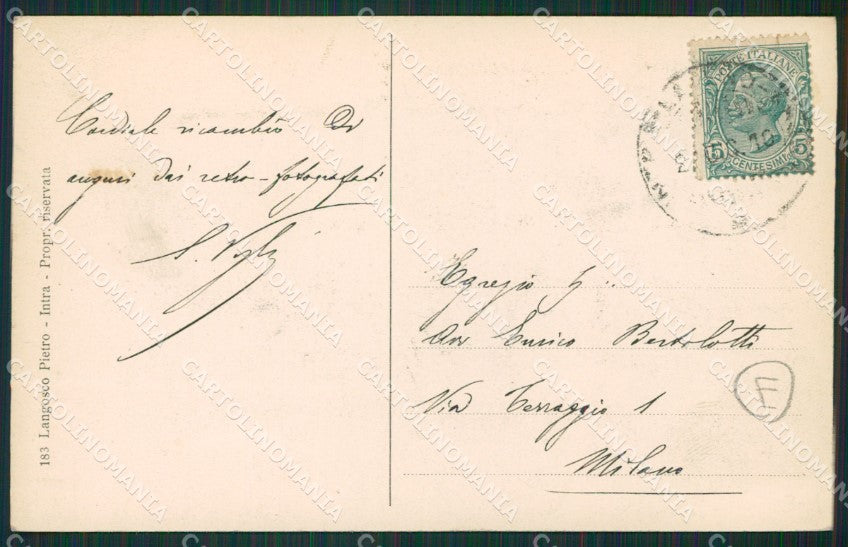 Cordiale ricambio di
auguri dai retro-fotografati
183 Langosco Pietro - Intra - Propr. riservata
POSTE ITALIANE
5 CENTESIMI 5
Egregio
Avv Enrico Bertolotti
Via Terraggio 1
Milano
CARTOLINOMANIA